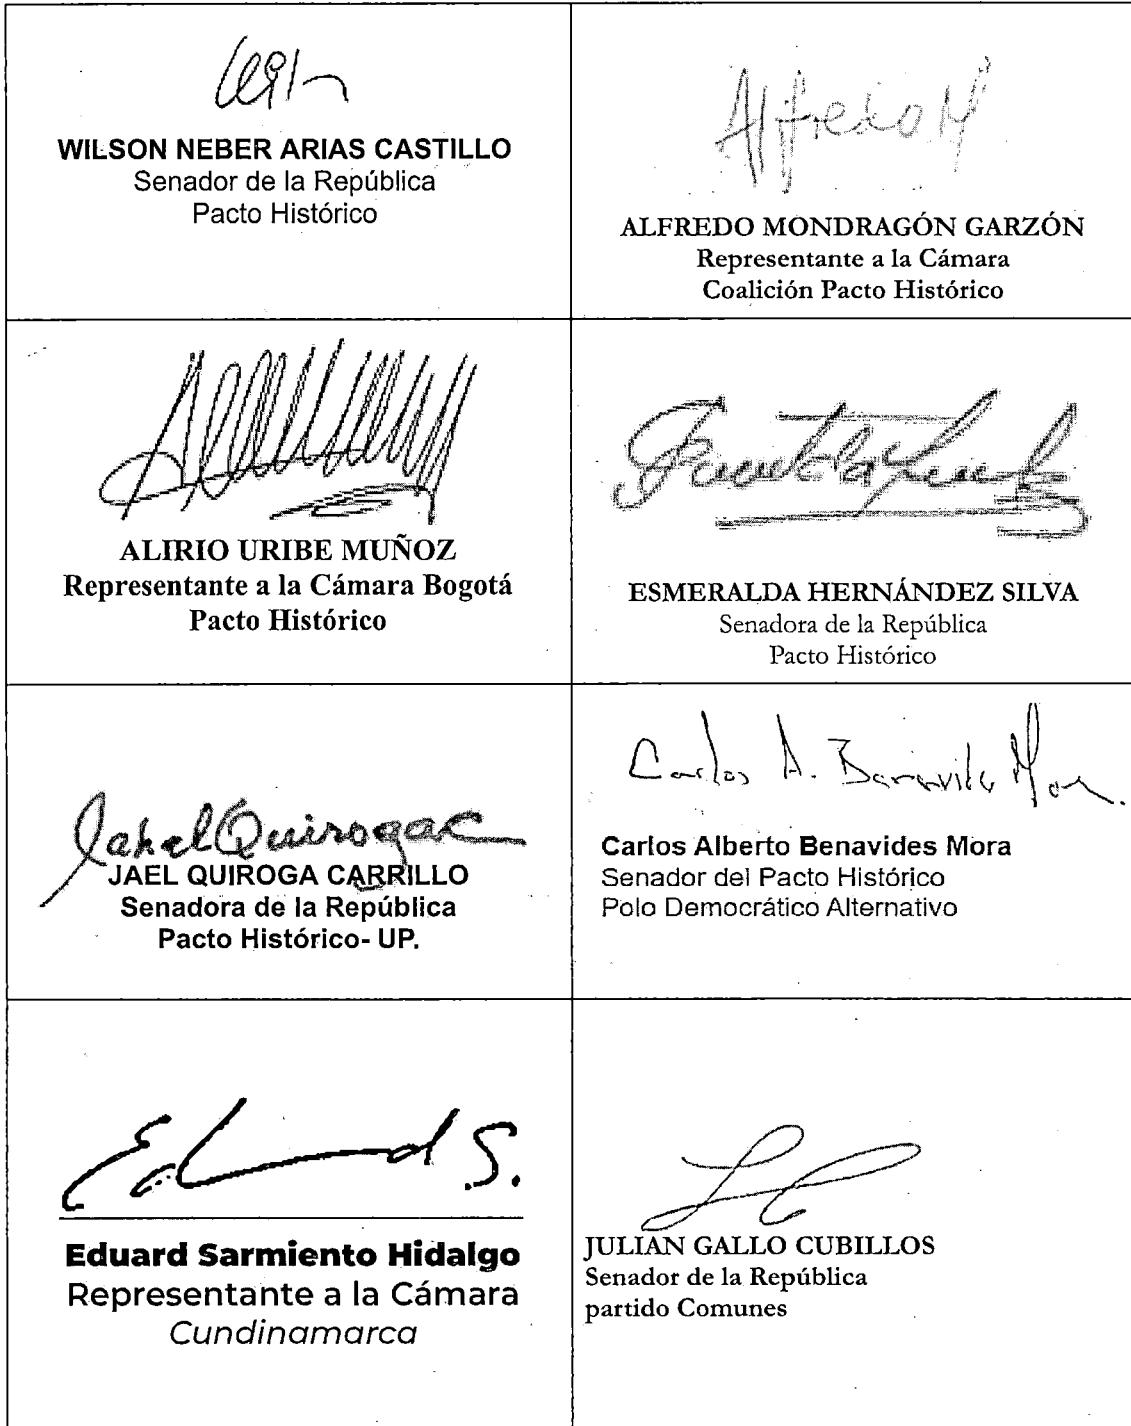 WILSON NEBER ARIAS CASTILLO
Senador de la República
Pacto Histórico
Alfredo M
ALFREDO MONDRAGÓN GARZÓN
Representante a la Cámara
Coalición Pacto Histórico
ALIRIO URIBE MUÑOZ
Representante a la Cámara Bogotá
Pacto Histórico
ESMERALDA HERNÁNDEZ SILVA
Senadora de la República
Pacto Histórico
JAEL QUIROGA CARRILLO
Senadora de la República
Pacto Histórico- UP.
Carlos A.
Carlos Alberto Benavides Mora
Senador del Pacto Histórico
Polo Democrático Alternativo
Eduard Sarmiento Hidalgo
Representante a la Cámara
Cundinamarca
JULIAN GALLO CUBILLOS
Senador de la República
partido Comunes